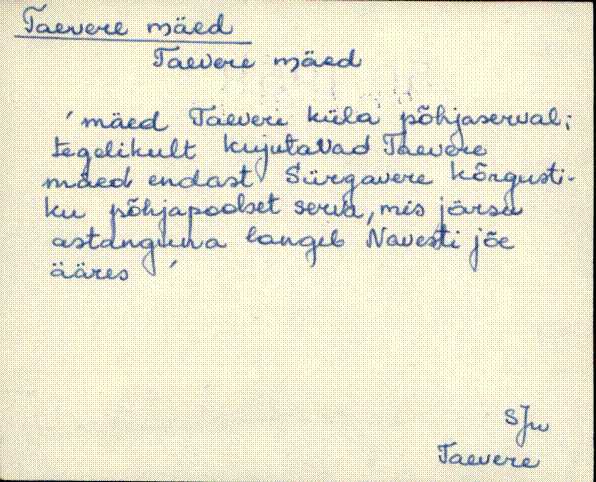 Taevere mäed
Taevere mäed
'mäed Taevere küla põhjaserval;
tegelikult kujutavad Taevere
mäed endast Sürgavere kõrgusti-
ku põhjapoolset serva, mis järsu
astanguna langeb Navesti jõe
ääres'
SJn
Taevere